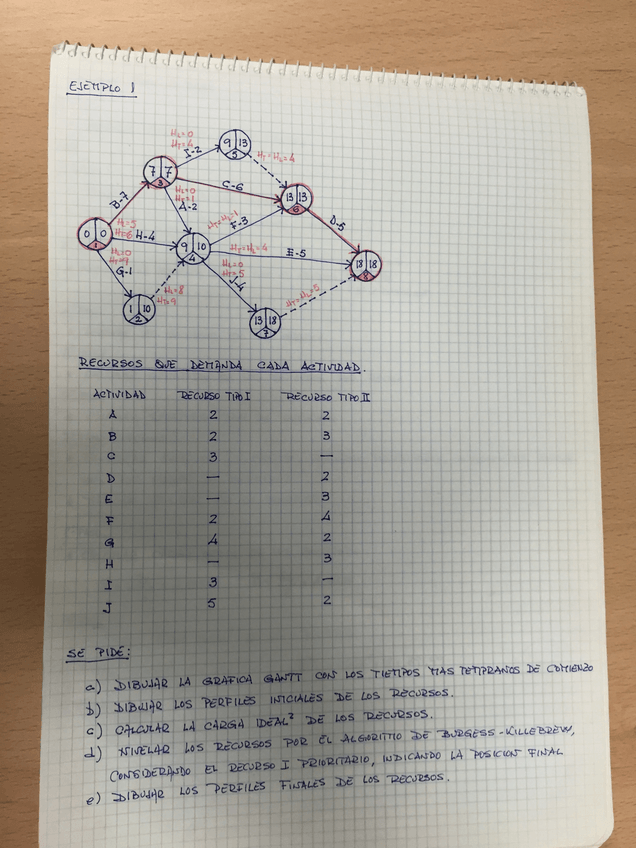 EJEMPLO 1
HL=0
HT=4
I-2
9 13
5
HT=HL=4
7 7
3
C-6
13 13
6
B-7
HL=0
HT=1
A-2
HT=HL=1
F-3
D-5
0 0
1
HL=5
HT=6
H-4
9 10
4
HT=HL=4
E-5
18 18
8
HL=0
HT=9
G-1
HL=0
HT=5
J-4
HL=8
HT=9
HT=HL=5
1 10
2
13 18
7
RECURSOS QUE DEMANDA CADA ACTIVIDAD.
ACTIVIDAD RECURSO TIPO I RECURSO TIPO II
A 2 2
B 2 3
C 3 —
D — 2
E — 3
F 2 4
G 4 2
H — 3
I 3 —
J 5 2
SE PIDE:
a) DIBUJAR LA GRAFICA GANTT CON LOS TIEMPOS MAS TEMPRANOS DE COMIENZO
b) DIBUJAR LOS PERFILES INICIALES DE LOS RECURSOS.
c) CALCULAR LA CARGA IDEAL² DE LOS RECURSOS.
d) NIVELAR LOS RECURSOS POR EL ALGORITMO DE BURGESS-KILLEBREW,
CONSIDERANDO EL RECURSO I PRIORITARIO, INDICANDO LA POSICION FINAL
e) DIBUJAR LOS PERFILES FINALES DE LOS RECURSOS.